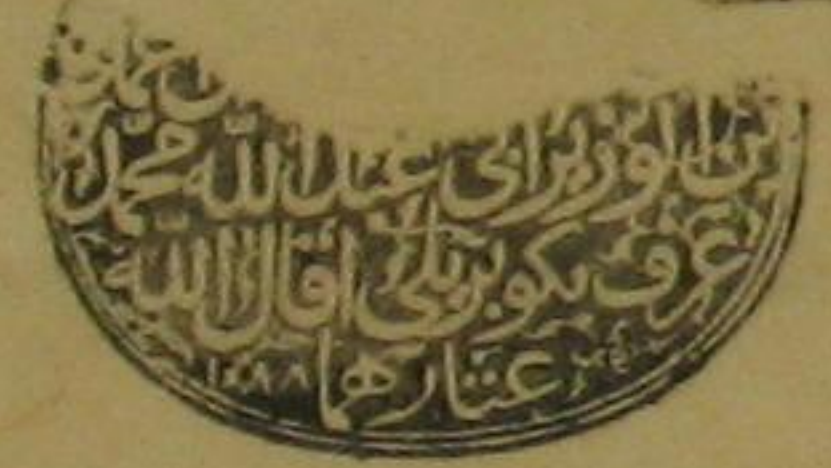 بن الوزير ابي عبد الله محمد
عرف بكوبريلي اقال الله
عثارهما ١٠٨٨